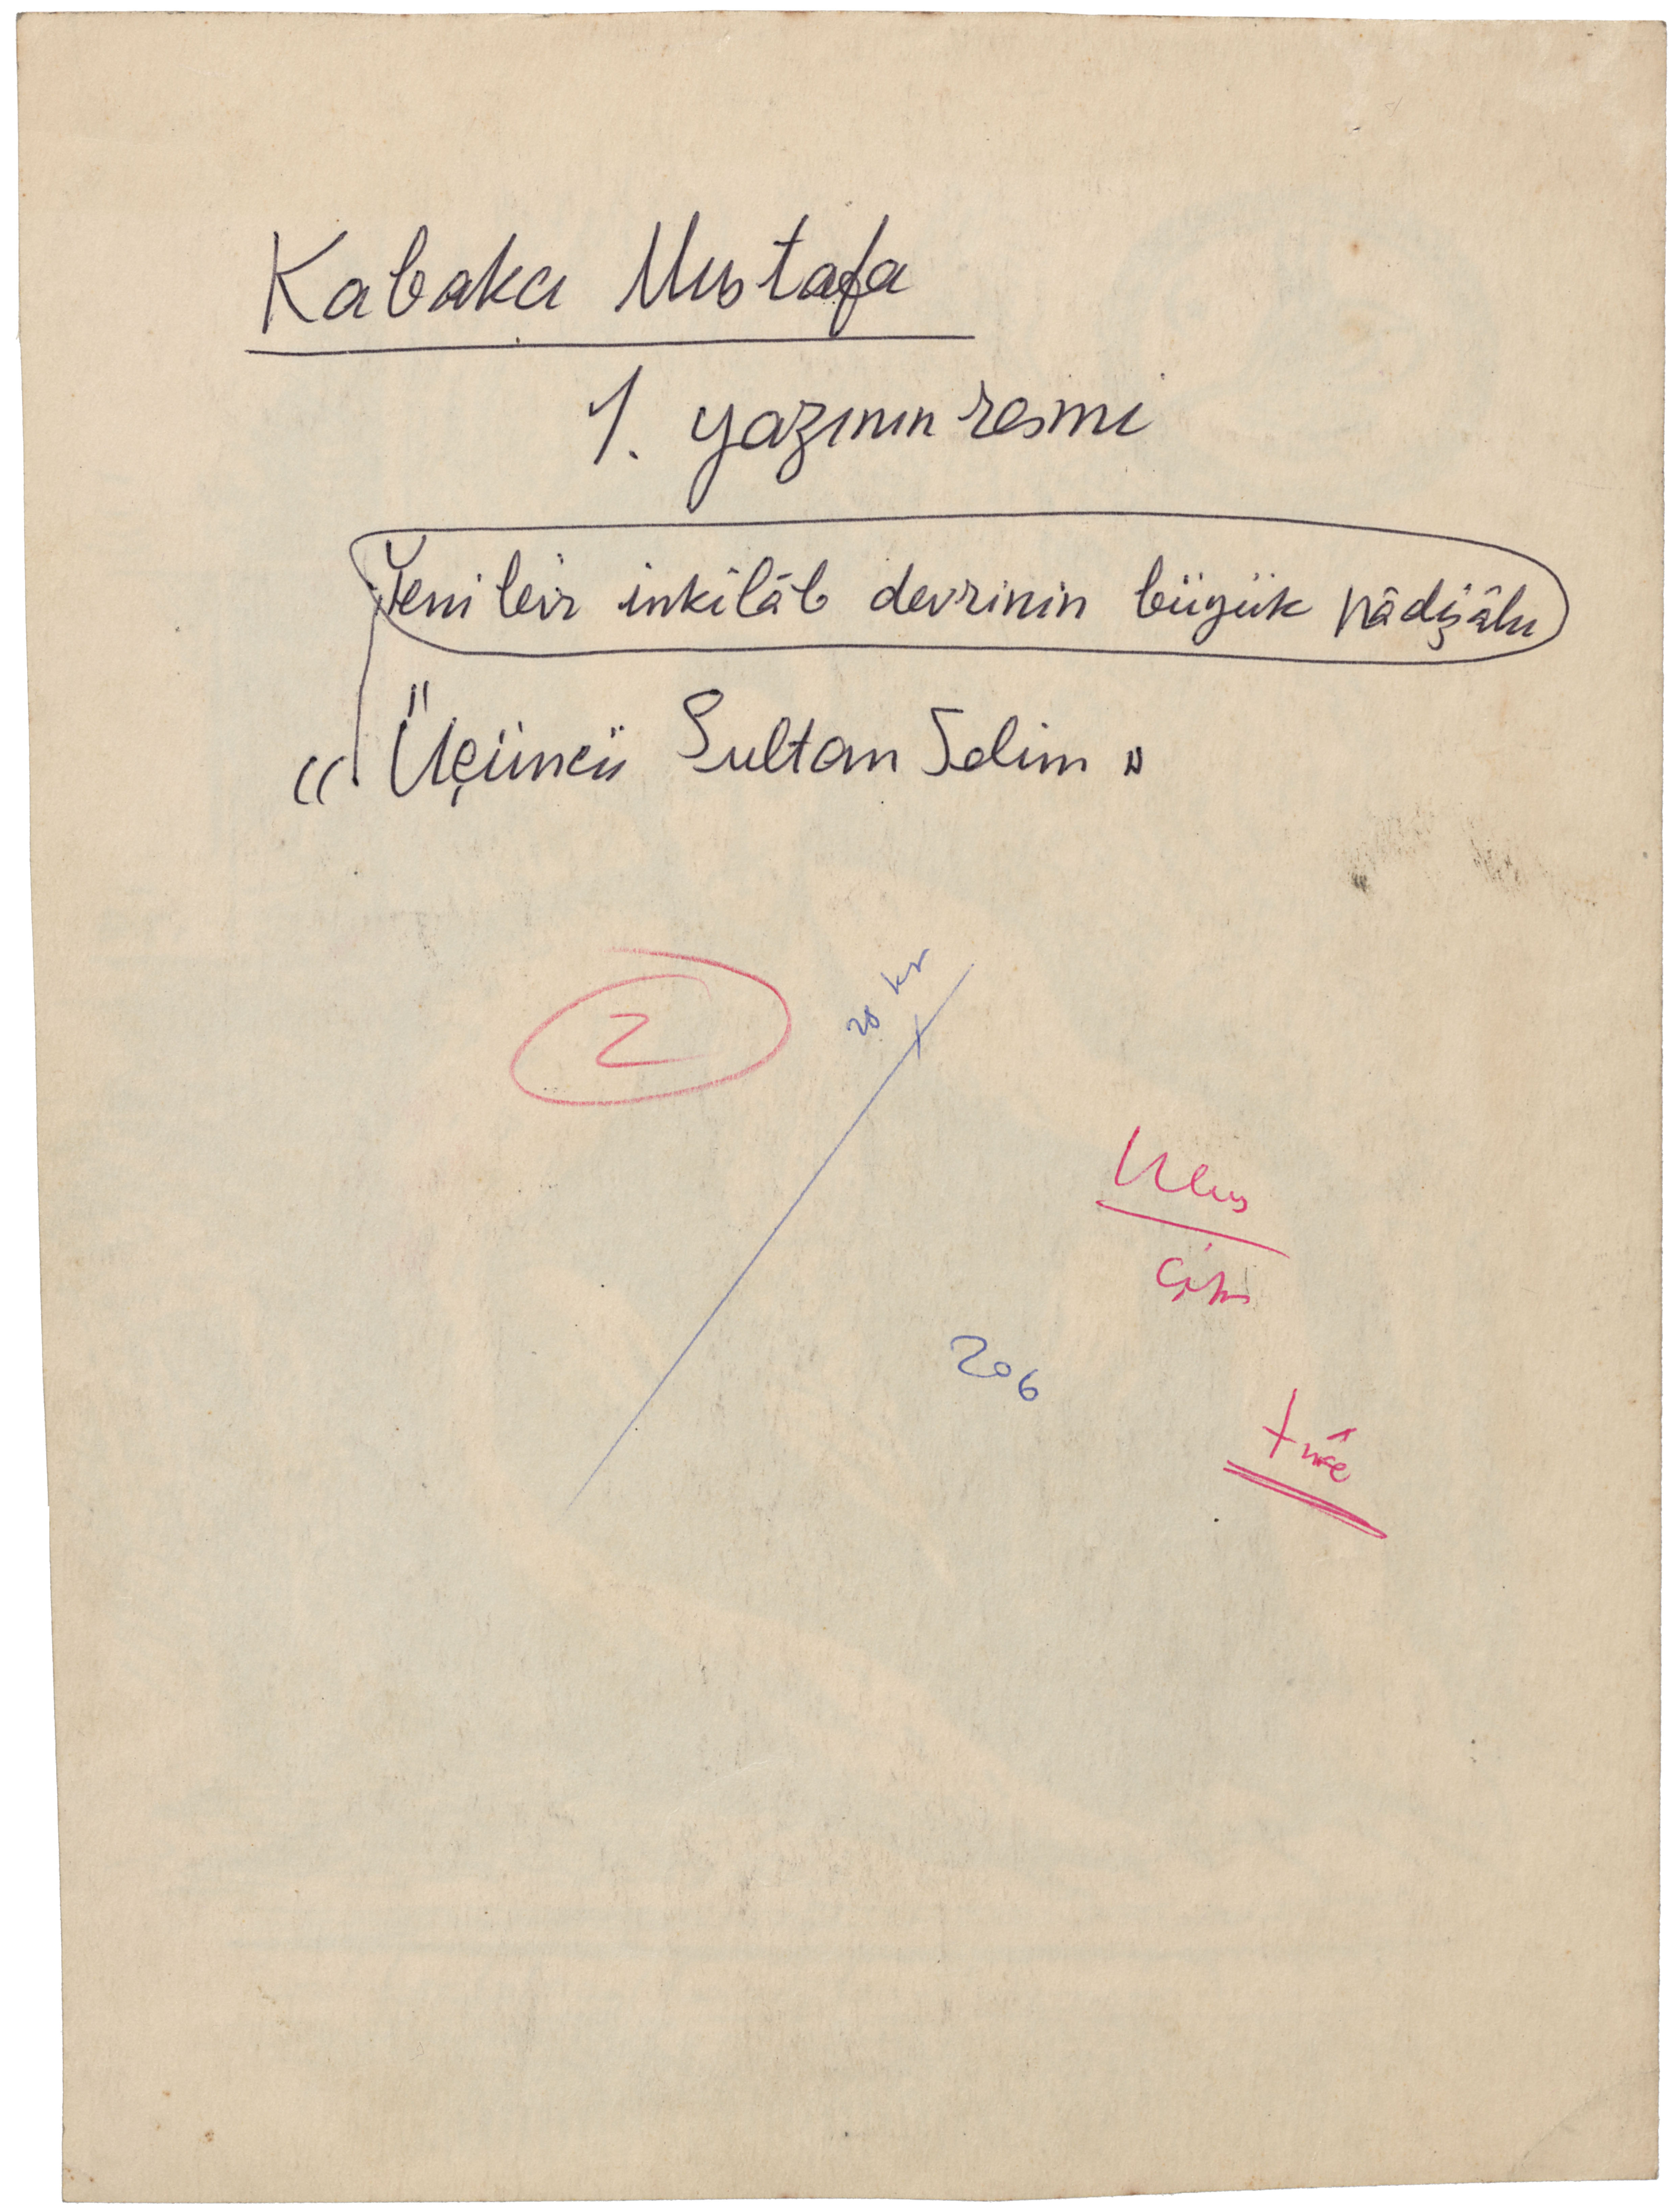 Kabakcı Mustafa
1. yazının resmi
Yeni bir inkilâb devrinin büyük pâdişâhı
"Üçüncü Sultan Selim"
2
20 kr
Ulus
için
206